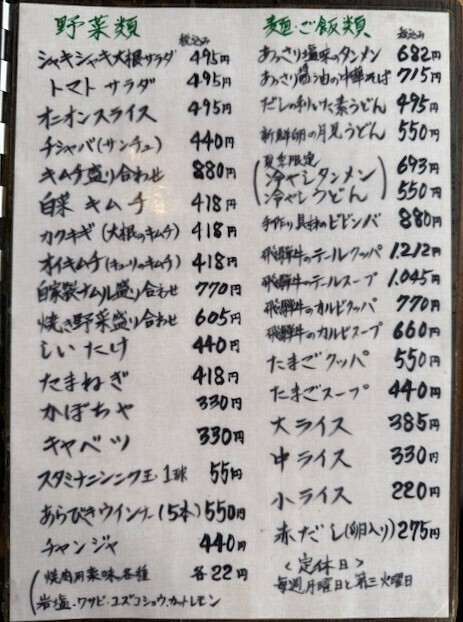 野菜類
税込み
シャキシャキ大根サラダ 495円
トマトサラダ 495円
オニオンスライス 495円
チシャバ(サンチュ) 440円
キムチ盛り合わせ 880円
白菜キムチ 418円
カクキギ(大根のキムチ) 418円
オイキムチ(キューリのキムチ) 418円
自家製ナムル盛り合わせ 770円
焼き野菜盛り合わせ 605円
しいたけ 440円
たまねぎ 418円
かぼちゃ 330円
キャベツ 330円
スタミナニンニク玉・1球 55円
あらびきウインナー(5本) 550円
チャンジャ 440円
(焼肉用薬味各種 各22円
岩塩・ワサビ・ユズコショウ・カットレモン
麺・ご飯類
税込み
あっさり塩味のタンメン 682円
あっさり醤油の中華そば 715円
だしの利いた素うどん 495円
新鮮卵の月見うどん 550円
夏季限定
(冷やしタンメン) 693円
(冷やしうどん) 550円
手作り具材のビビンバ 880円
飛騨牛のテールクッパ 1.212円
飛騨牛のテールスープ 1.045円
飛騨牛のカルビクッパ 770円
飛騨牛のカルビスープ 660円
たまごクッパ 550円
たまごスープ 440円
大ライス 385円
中ライス 330円
小ライス 220円
赤だし(卵入り) 275円
<定休日>
毎週月曜日と第三火曜日